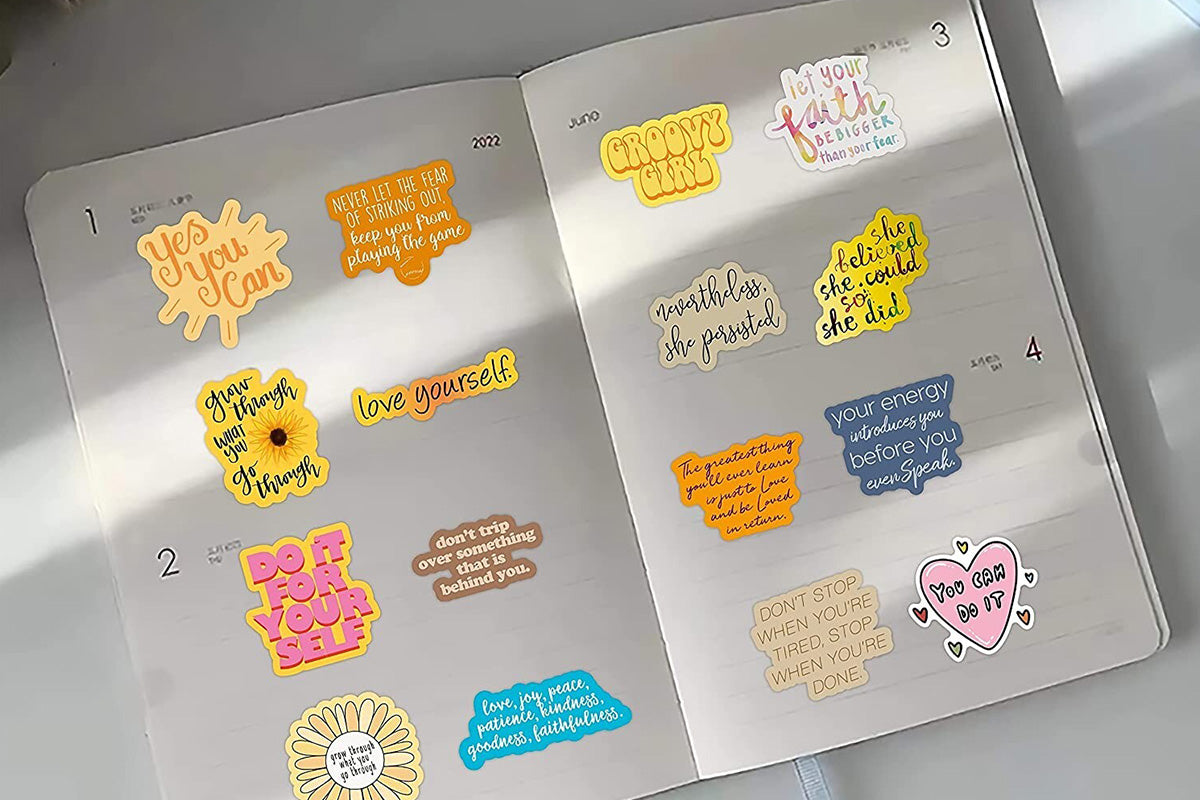 1
2022
Yes
You
Can
NEVER LET THE FEAR
OF STRIKING OUT,
keep you from
playing the game
grow
through
WHAT
YOU
go
through
love yourself.
2
DO IT
FOR
YOUR
SELF
don't trip
over something
that is
behind you.
grow through
what you
go through
love, joy, peace,
patience, kindness,
goodness, faithfulness.
JUNO
3
GROOVY
GIRL
let your
faith
BE BIGGER
than your fear.
nevertheless,
she persisted
she
believed
she could
so
she did
4
The greatest thing
you'll ever learn
is just to Love
and be Loved
in return.
your energy
introduces you
before you
even Speak.
DON'T STOP
WHEN YOU'RE
TIRED, STOP
WHEN YOU'RE
DONE.
YOU CAN
DO IT